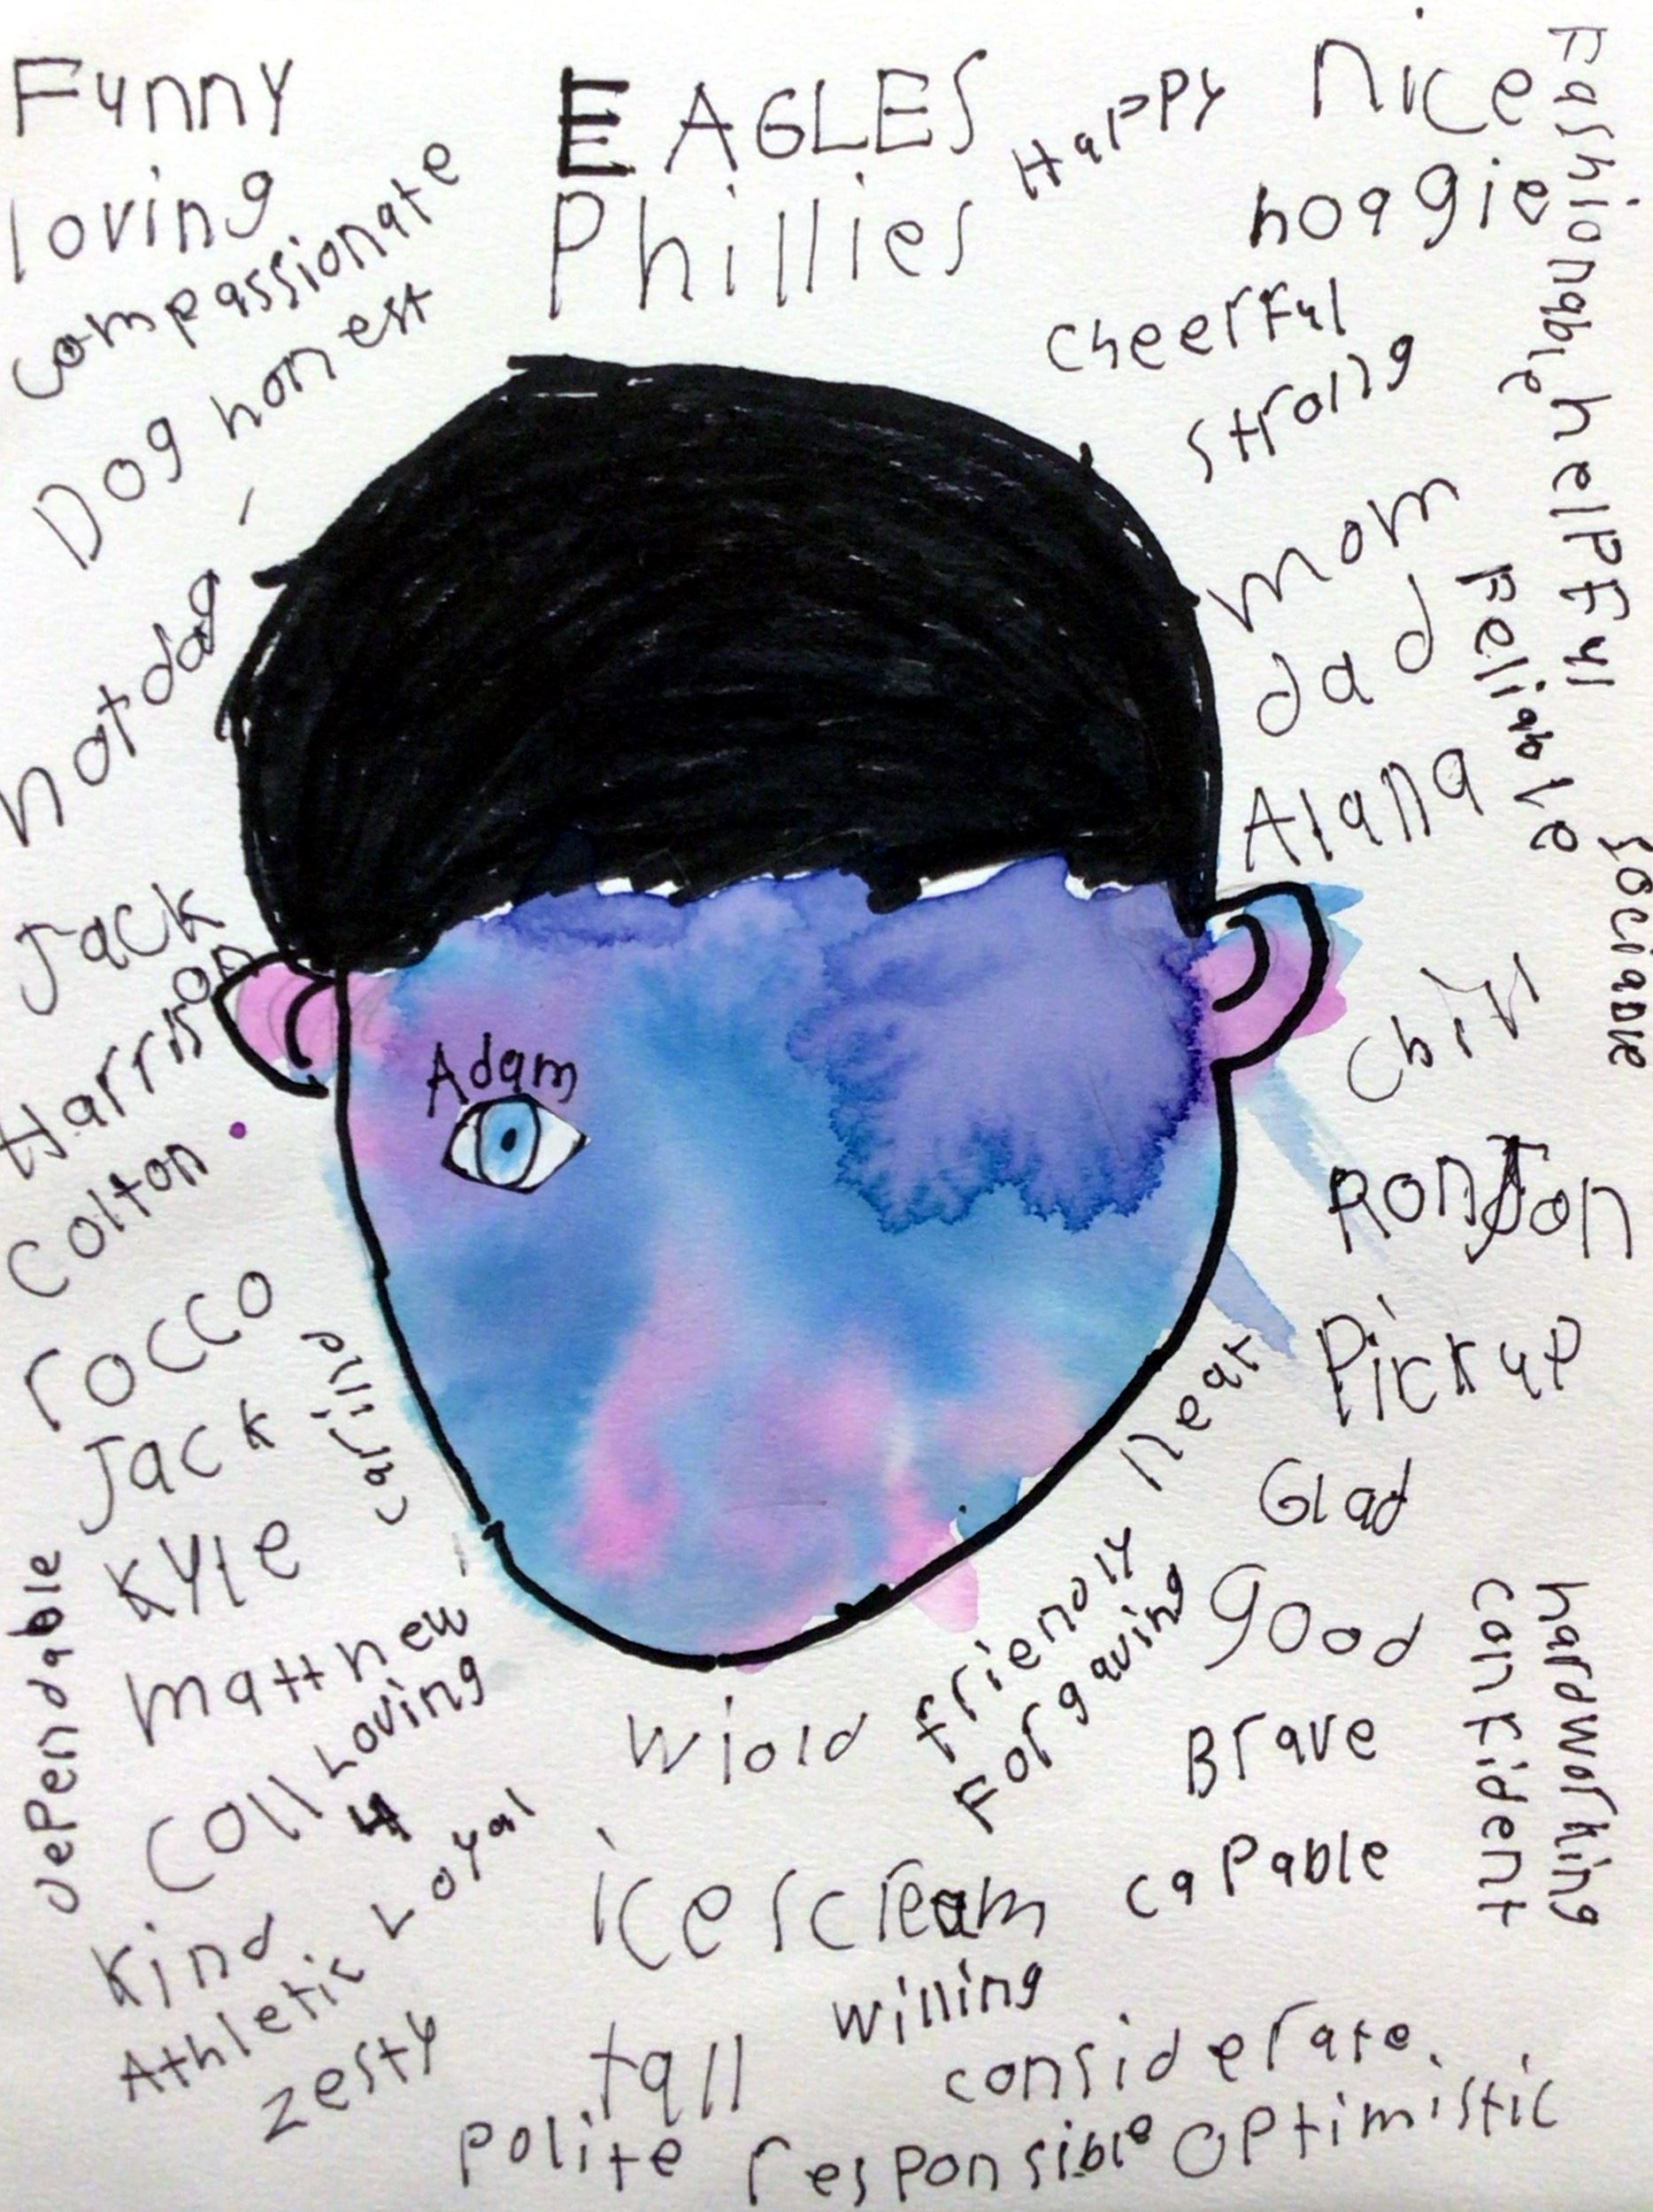 Funny
loving
compassionate
Dog honest
hotdog
Jack
Harrison
Colton
rocco
Jack
Kyle
matthew
Loving
Coll
4
Loyal
Kind
Athletic
zesty
dependable
EAGLES
Phillies
Happy
nice
hoagie
cheerful
strong
mom
dad
Alana
Fashionable
helpful
sociable
Adam
Pickup
neat
Glad
friendly
Forgaving
good
Brave
capable
confident
hardworking
wiold
icescream
willing
tall
considerate.
polite responsible optimistic